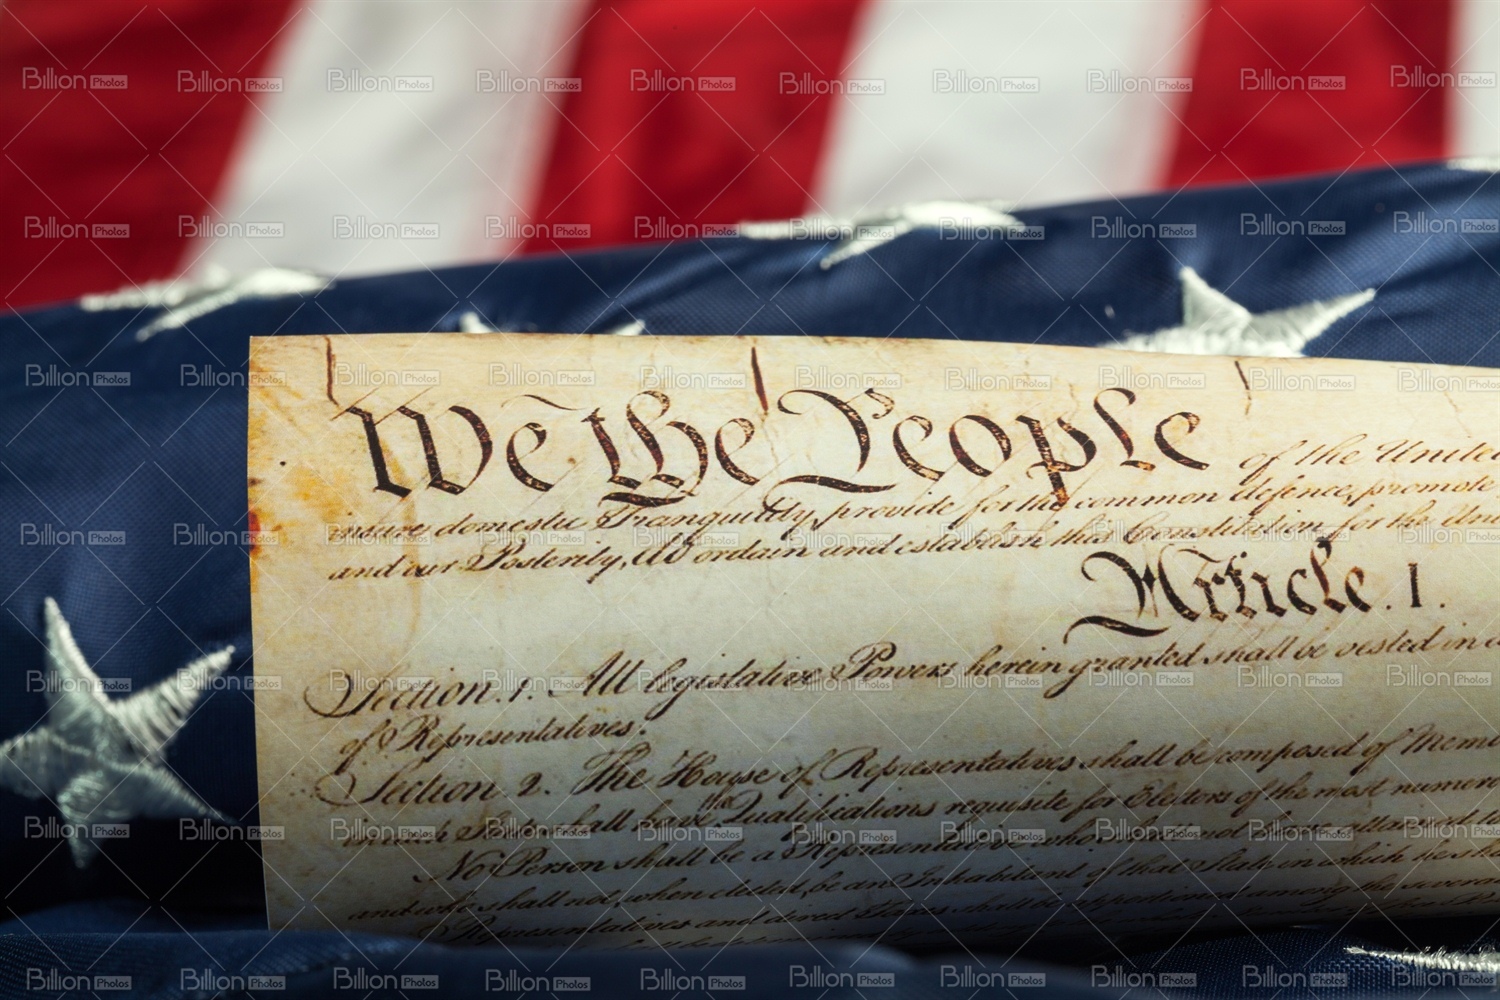 We the People of the United
insure domestic Tranquility, provide for the common defence, promote
and our Posterity, do ordain and establish this Constitution for the Uni
Article. I.
Section. 1. All legislative Powers herein granted shall be vested in a
of Representatives.
Section. 2. The House of Representatives shall be composed of Mem
in each State shall have the Qualifications requisite for Electors of the most numero
No Person shall be a Representative who shall not have attained to
and who shall not, when elected, be an Inhabitant of that State in which he sha
Representatives and direct Taxes shall be apportioned among the several
Billion Photos